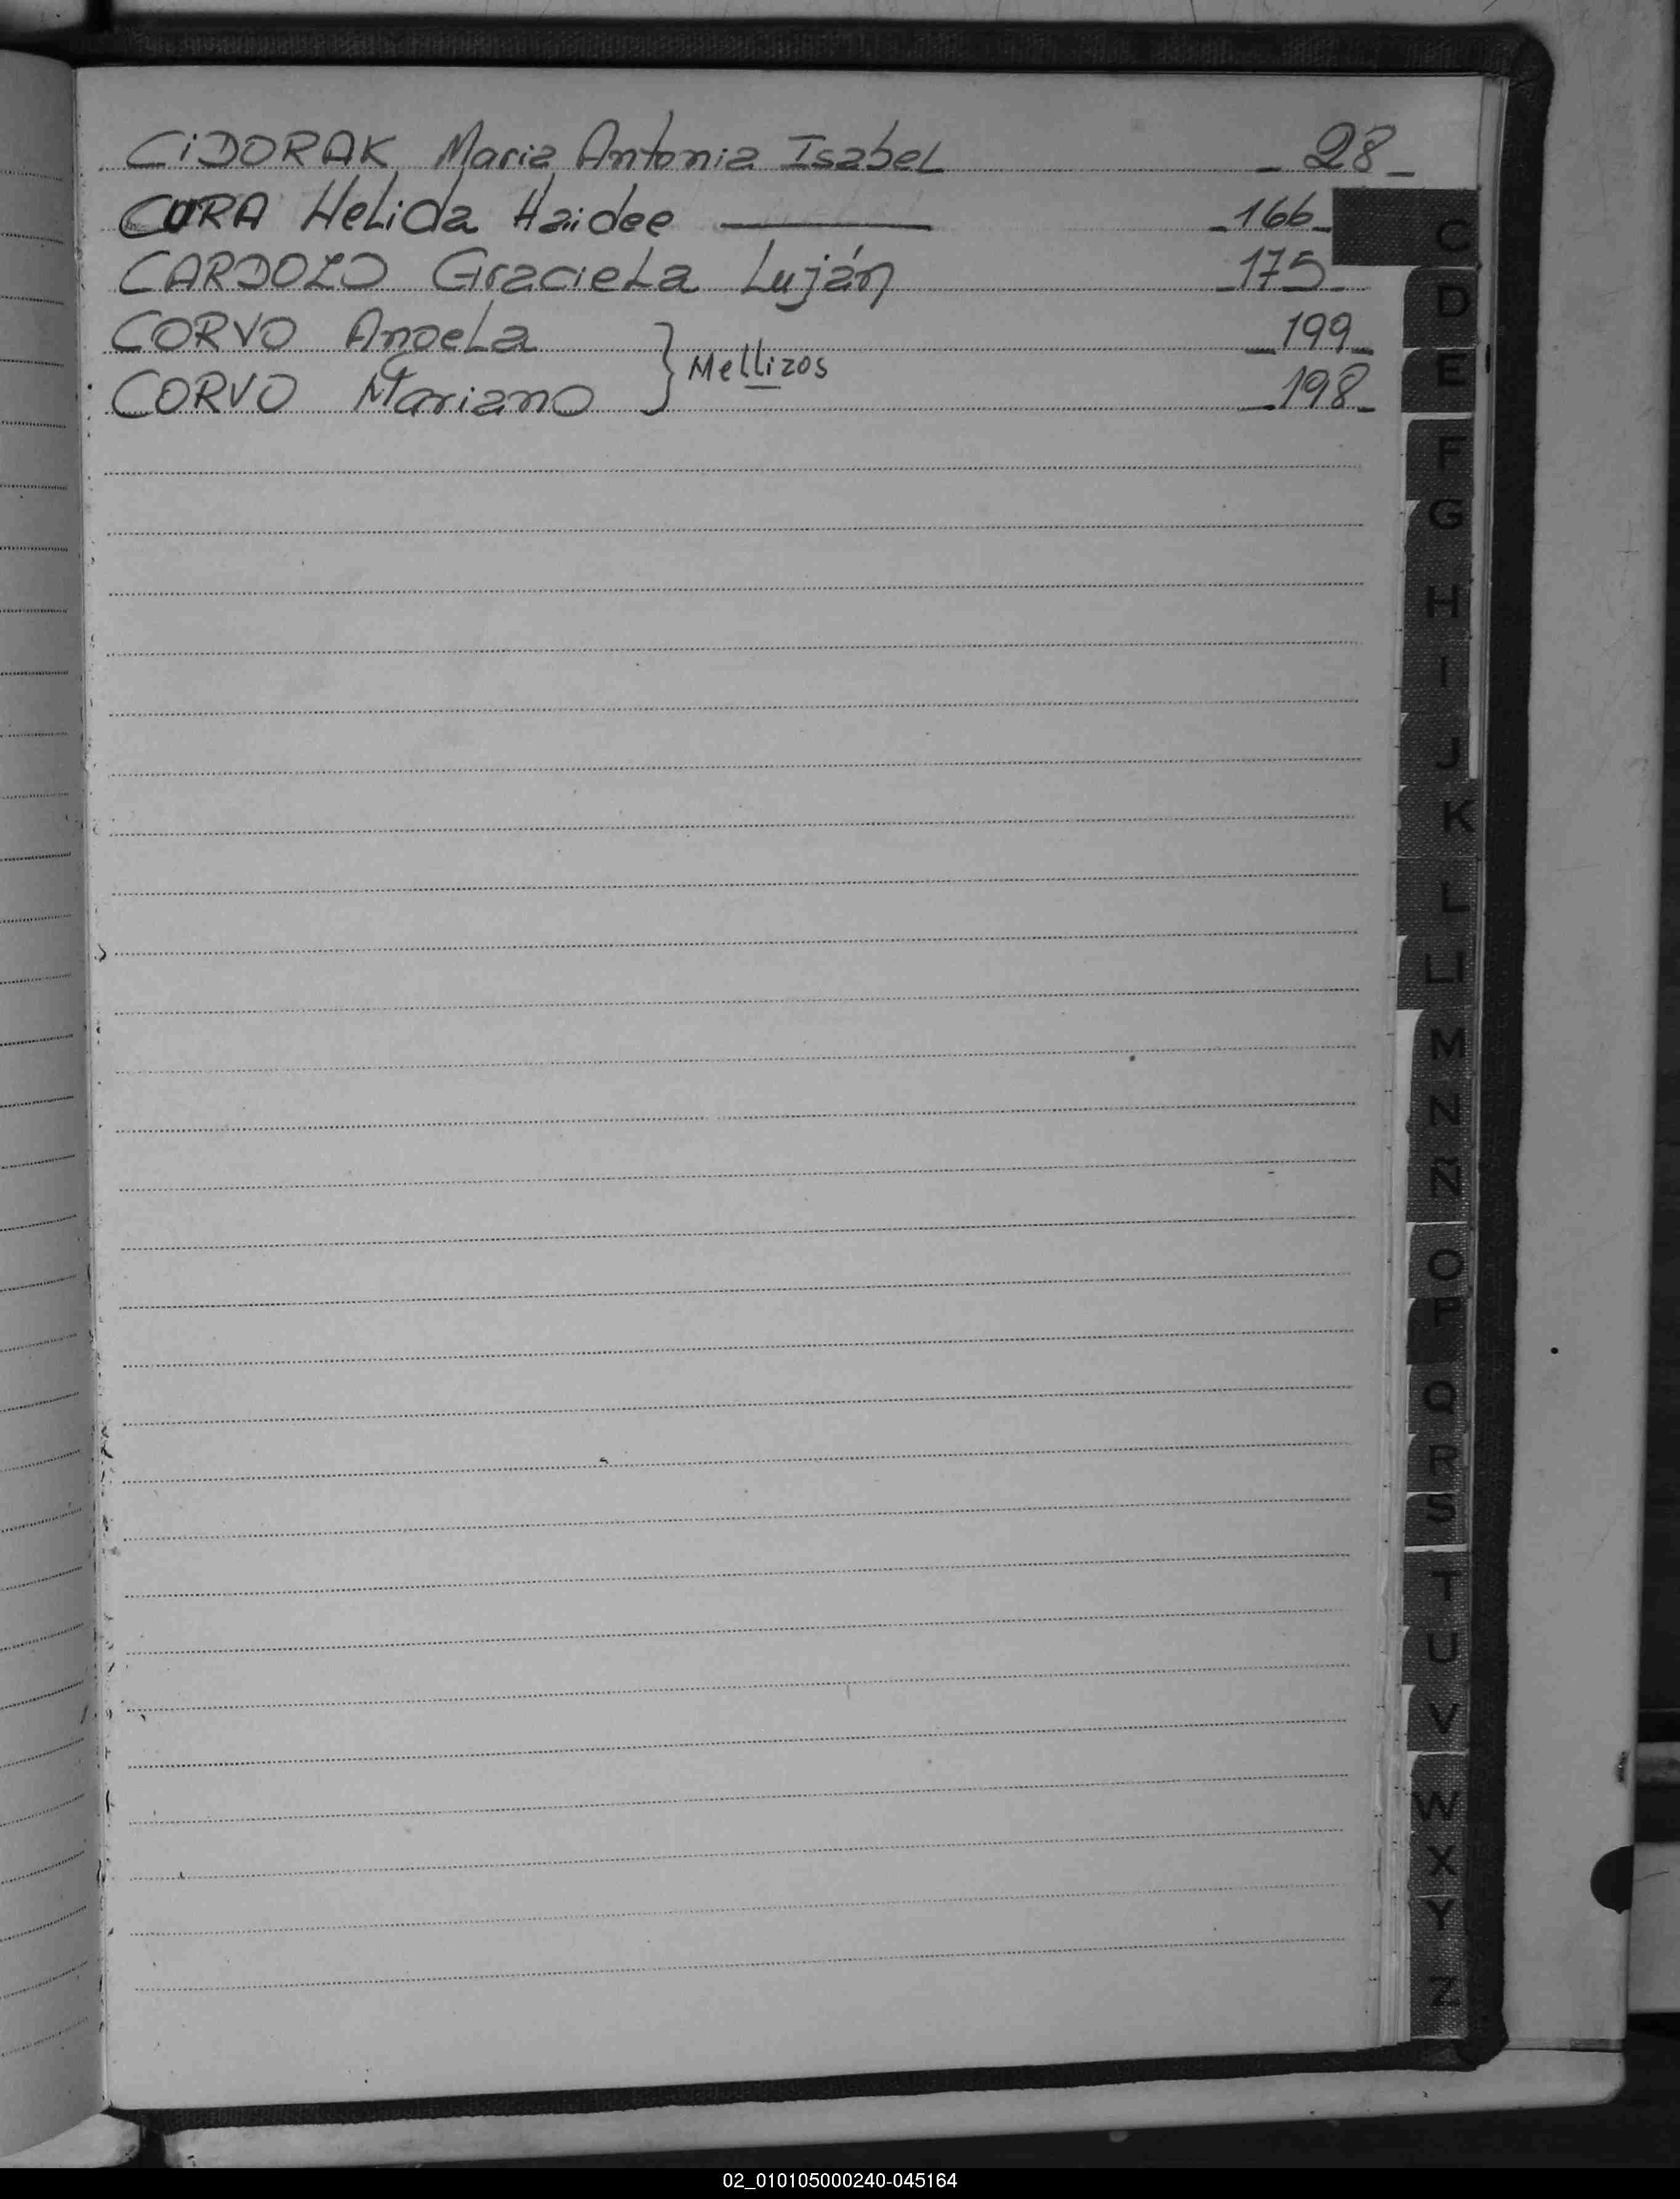 CiDORAK Maria Antonia Isabel _ 28 _
CURA Helida Haidee _ 166 _
CARDOZO Graciela Luján _ 175 _
CORVO Angela _ 199 _
Mellizos
CORVO Mariano _ 198 _
C
D
E
F
G
H
I
J
K
L
LL
M
N
Ñ
O
P
Q
R
S
T
U
V
W
X
Y
Z
02_010105000240-045164